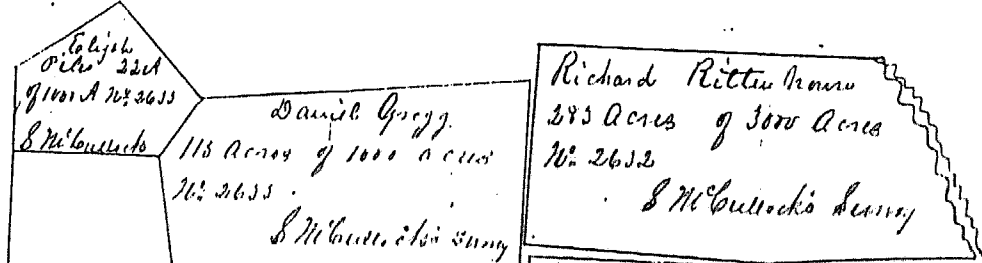 Elijah
Piles 22A
of 1000 A No. 2633
S McCullocks
Daniel Gregg
113 Acres of 1000 acres
No. 2633
S McCullock's Survey
Richard Rittenhouse
283 Acres of 3000 Acres
No. 2632
S McCullock's Survey